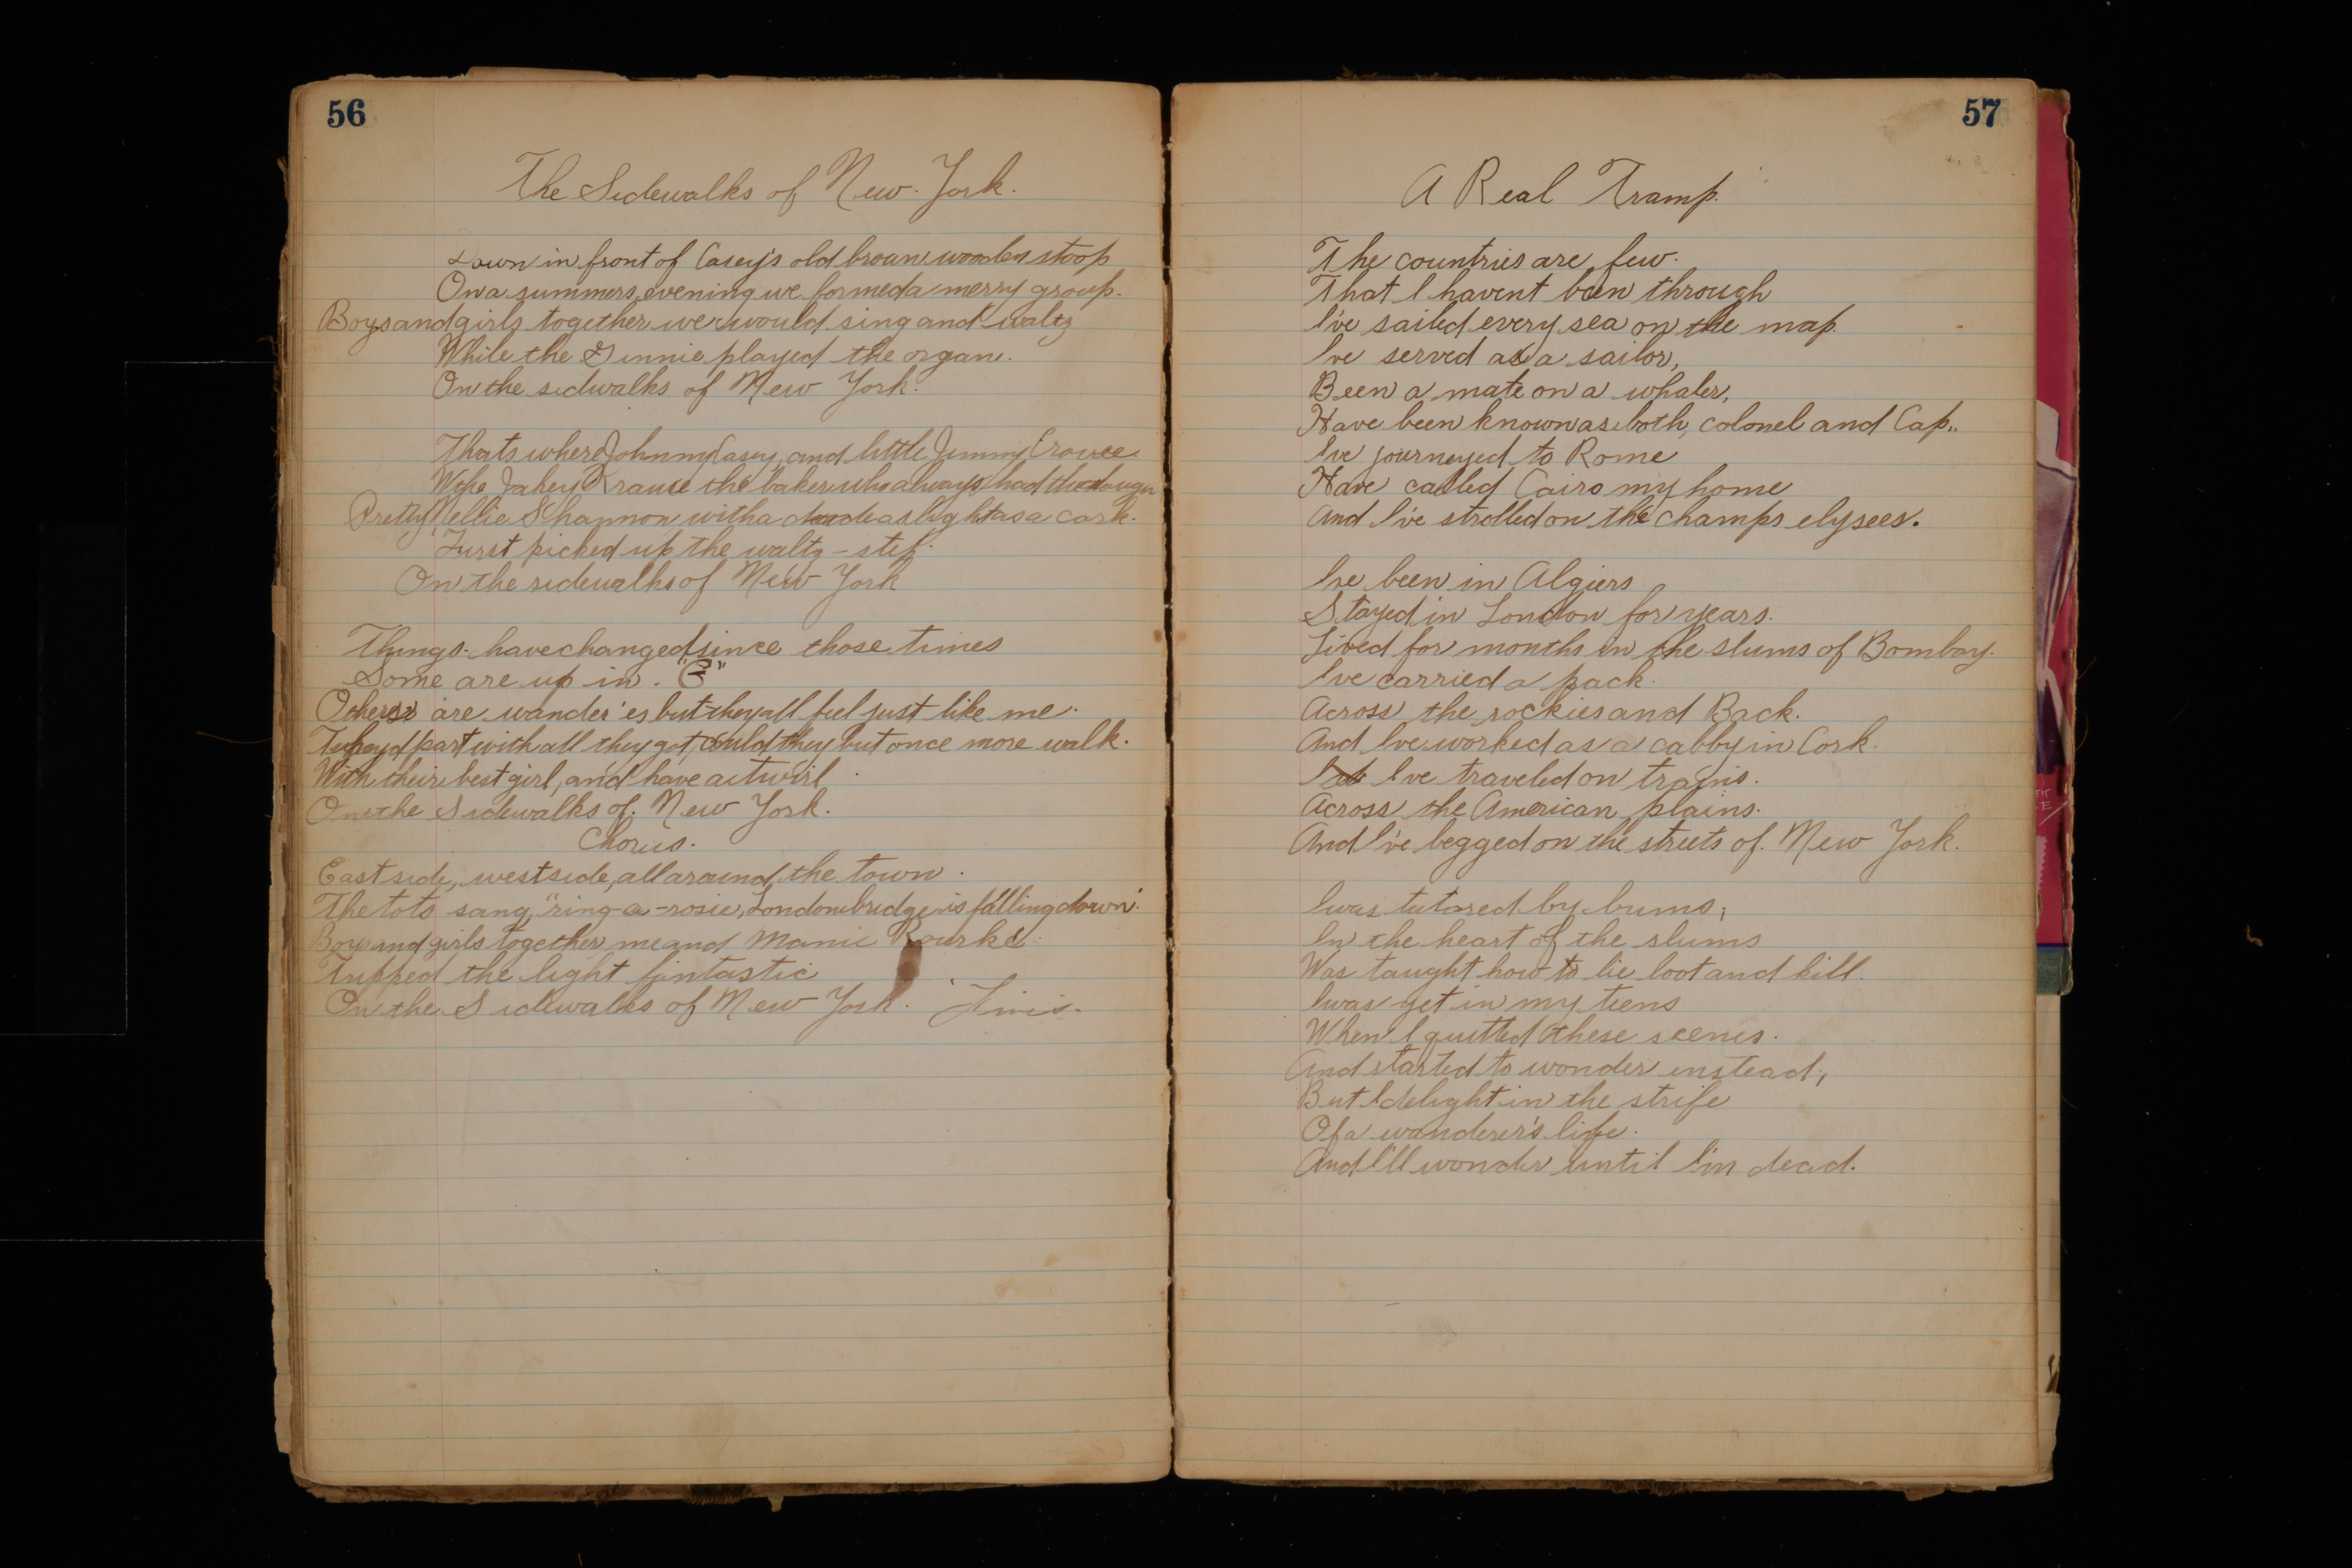 56
The Sidewalks of New. York.
Down in front of Casey's old brown wooden stoop
On a summers evening we formed a merry group.
Boys and girls together we would sing and waltz
While the Ginnie played the organ.
On the sidwalks of New York.
Thats where Johnny Casey, and little Jimmy Crowe
With Jakey Krause the baker who always had the dough
Pretty Nellie Shannon with a dude as light as a cork.
First picked up the waltz-step.
On the sidewalks of New York
Things. have changed since those times
Some are up in. "G"
Others are wander'es but they all feel just like me.
They'd part with all they got, could they but once more walk.
With their best girl, and have a twirl.
On the Sidewalks of. New York.
Chorus.
East side, westside, all around, the town.
The tots sang, "ring-a-rosie, London bridge is falling down".
Boys and girls together, me and Mamie Rourke
Tripped the light fintastic
On the Sidewalks of New York. Finis.
57
A Real Tramp.
The countries are few.
That I havent been through
I've sailed every sea on the map.
Ive served as a sailor,
Been a mate on a whaler,
Have been known as both, colonel and Cap..
Ive journeyed to Rome
Have called Cairo my home
And I've strolled on the champs elysees.
Ive been in Algiers
Stayed in London for years.
Lived for months in the slums of Bombay.
Ive carried a pack.
Across the rockies and Back.
And Ive worked as a cabby in Cork.
Ive traveled on trains.
Across the American plains.
And I've begged on the streets of. New York.
I was tutored by bums;
In the heart of the slums
Was taught how to lie loot and kill.
I was yet in my teens
When I quitted these scenes.
And started to wonder instead;,
But I delight in the strife
Of a wanderer's life.
And I'll wonder until I'm dead.